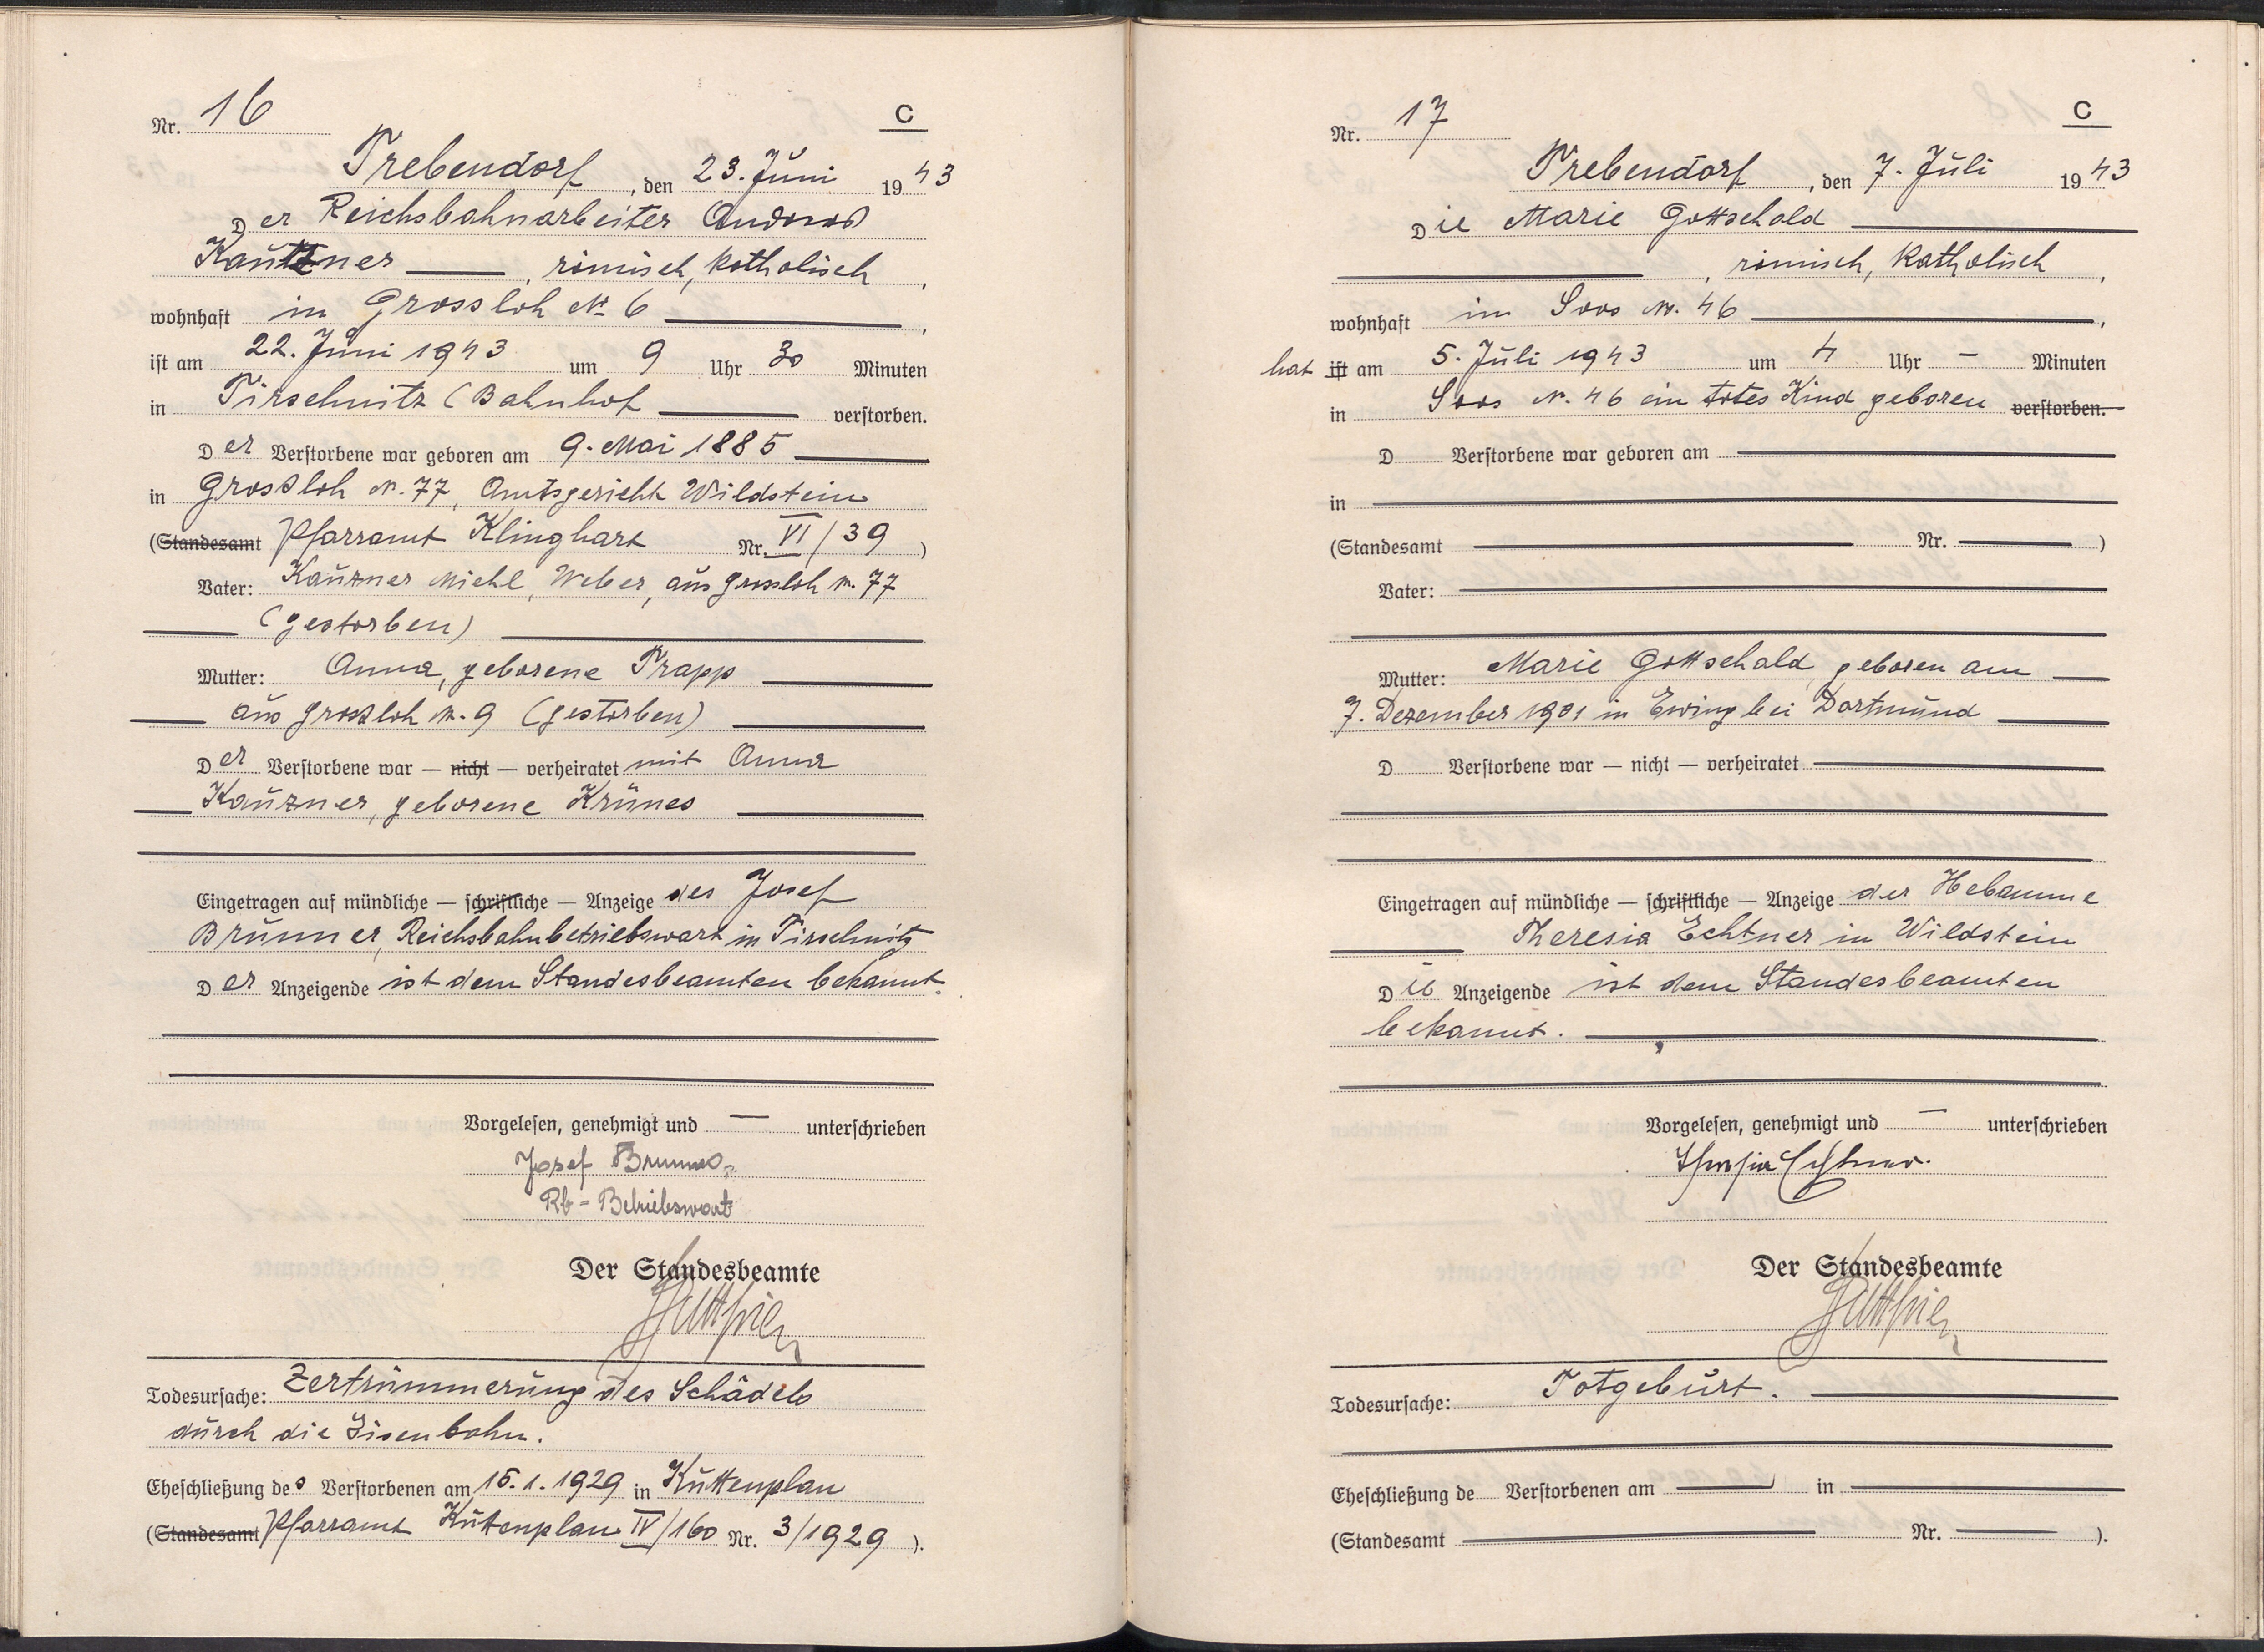 Nr. 16
C
Trebendorf, den 23. Juni 1943
Der Reichsbahnarbeiter Andreas
Kautzner, römisch, katholisch,
wohnhaft in Grossloh Nr 6,
ist am 22. Juni 1943 um 9 Uhr 30 Minuten
in Tirschnitz (Bahnhof verstorben.
Der Verstorbene war geboren am 9. Mai 1885
in Grossloh N. 77, Amtsgericht Wildstein
(Standesamt Pfarramt Klinghart Nr. VI/39)
Vater: Kauzner Michl, Weber, aus Grossloh N. 77
(gestorben)
Mutter: Anna, geborene Trapp
aus Grossloh N. 9 (gestorben)
Der Verstorbene war — nicht — verheiratet mit Anna
Kauzner, geborene Krünes
Eingetragen auf mündliche — schriftliche — Anzeige des Josef
Brunner, Reichsbahnbetriebswart in Tirschnitz
Der Anzeigende ist dem Standesbeamten bekannt.
Vorgelesen, genehmigt und — unterschrieben
Josef Brunner,
Rb-Betriebswart
Der Standesbeamte
Todesursache: Zertrümmerung des Schädels
durch die Eisenbahn.
Eheschließung des Verstorbenen am 15.1.1929 in Kuttenplan
(Standesamt Pfarramt Kuttenplan IV/160 Nr. 3/1929).
Nr. 17
C
Trebendorf, den 7. Juli 1943
Die Marie Gottschald
, römisch, katholisch,
wohnhaft in Soos N. 46,
hat ist am 5. Juli 1943 um 4 Uhr — Minuten
in Soos N. 46 ein totes Kind geboren verstorben.
D Verstorbene war geboren am
in
(Standesamt Nr. )
Vater:
Mutter: Marie Gottschald, geboren am
7. Dezember 1901 in Ewing bei Dortmund
D Verstorbene war — nicht — verheiratet
Eingetragen auf mündliche — schriftliche — Anzeige der Hebamme
Theresia Echtner in Wildstein
Die Anzeigende ist dem Standesbeamten
bekannt.
Vorgelesen, genehmigt und — unterschrieben
Theresia Echtner.
Der Standesbeamte
Todesursache: Totgeburt.
Eheschließung de Verstorbenen am in
(Standesamt Nr. ).